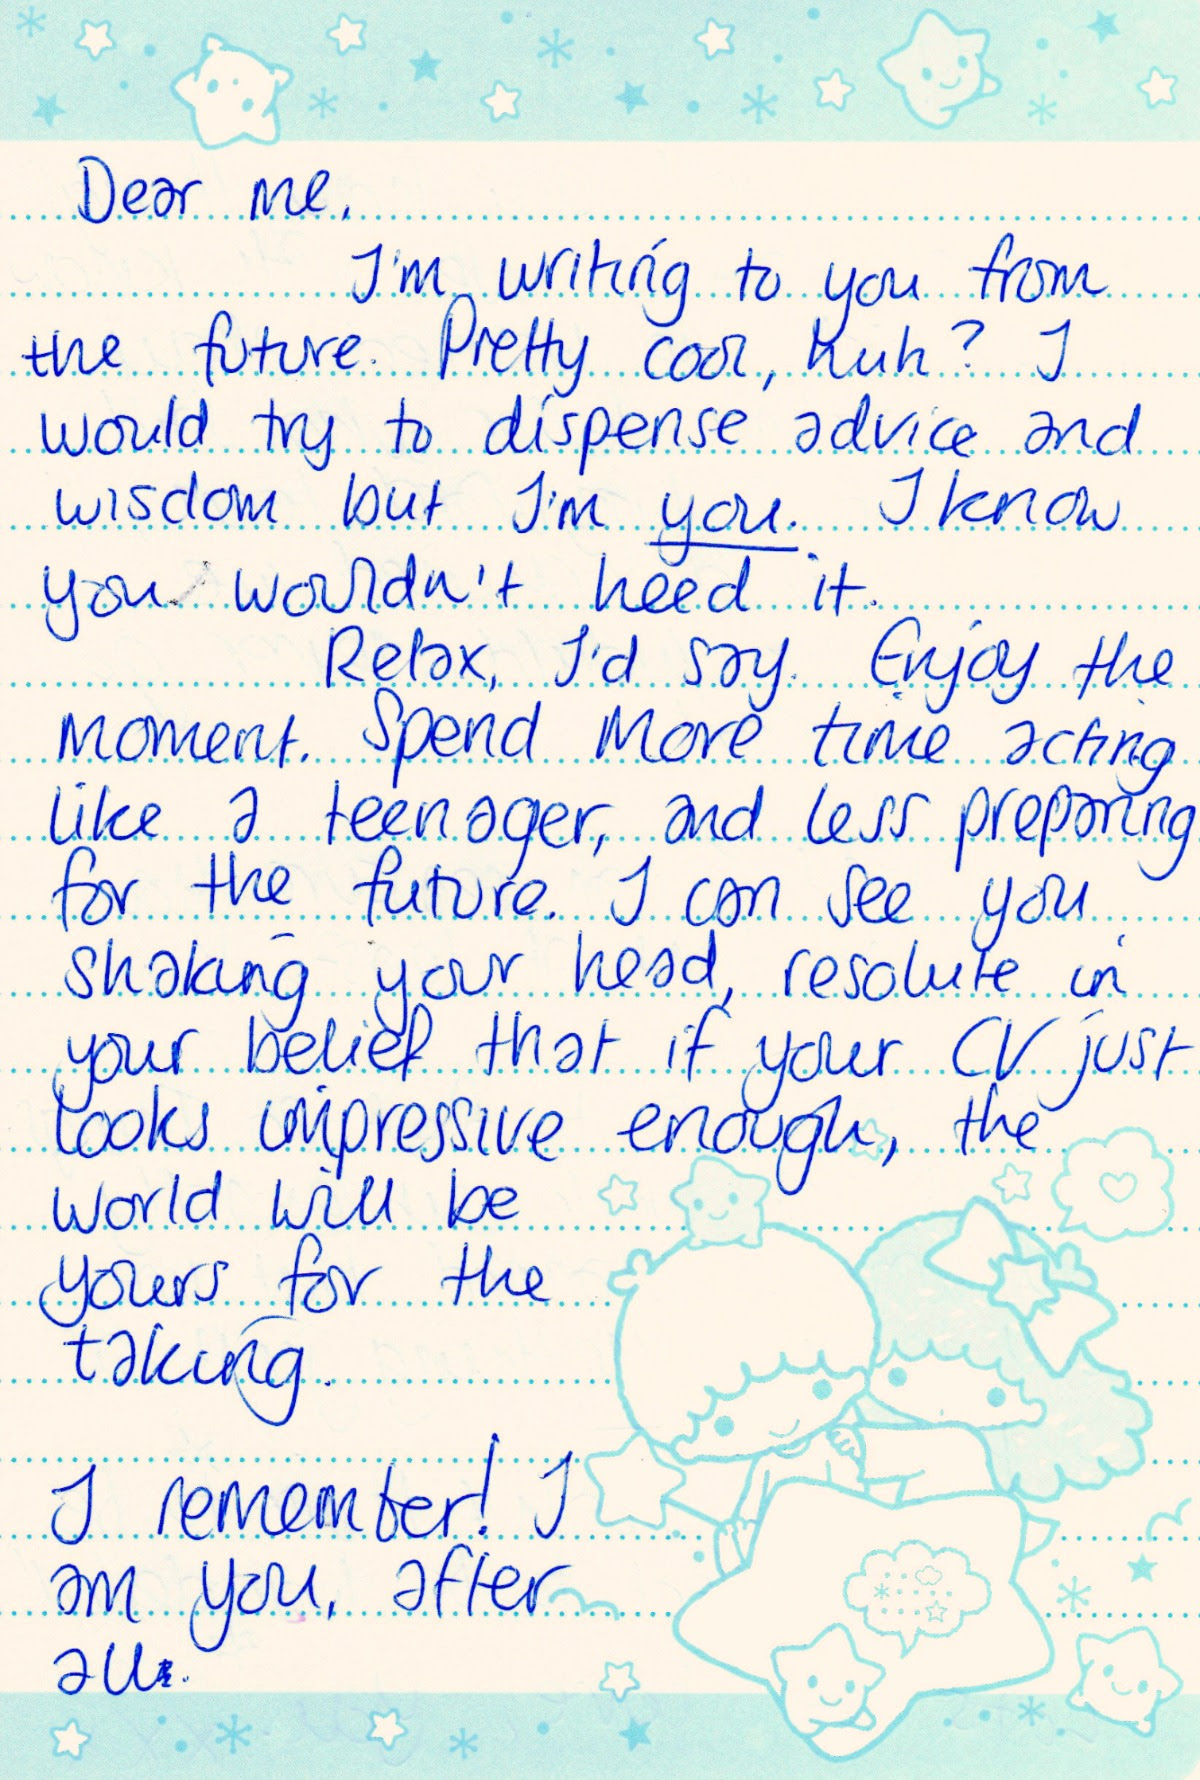 Dear me,
I'm writing to you from
the future. Pretty cool, huh? I
would try to dispense advice and
wisdom but I'm you. I know
you wouldn't heed it.
Relax, I'd say. Enjoy the
moment. Spend more time acting
like a teenager, and less preparing
for the future. I can see you
shaking your head, resolute in
your belief that if your CV just
looks impressive enough, the
world will be
yours for the
taking.
I remember! I
am you, after
all.